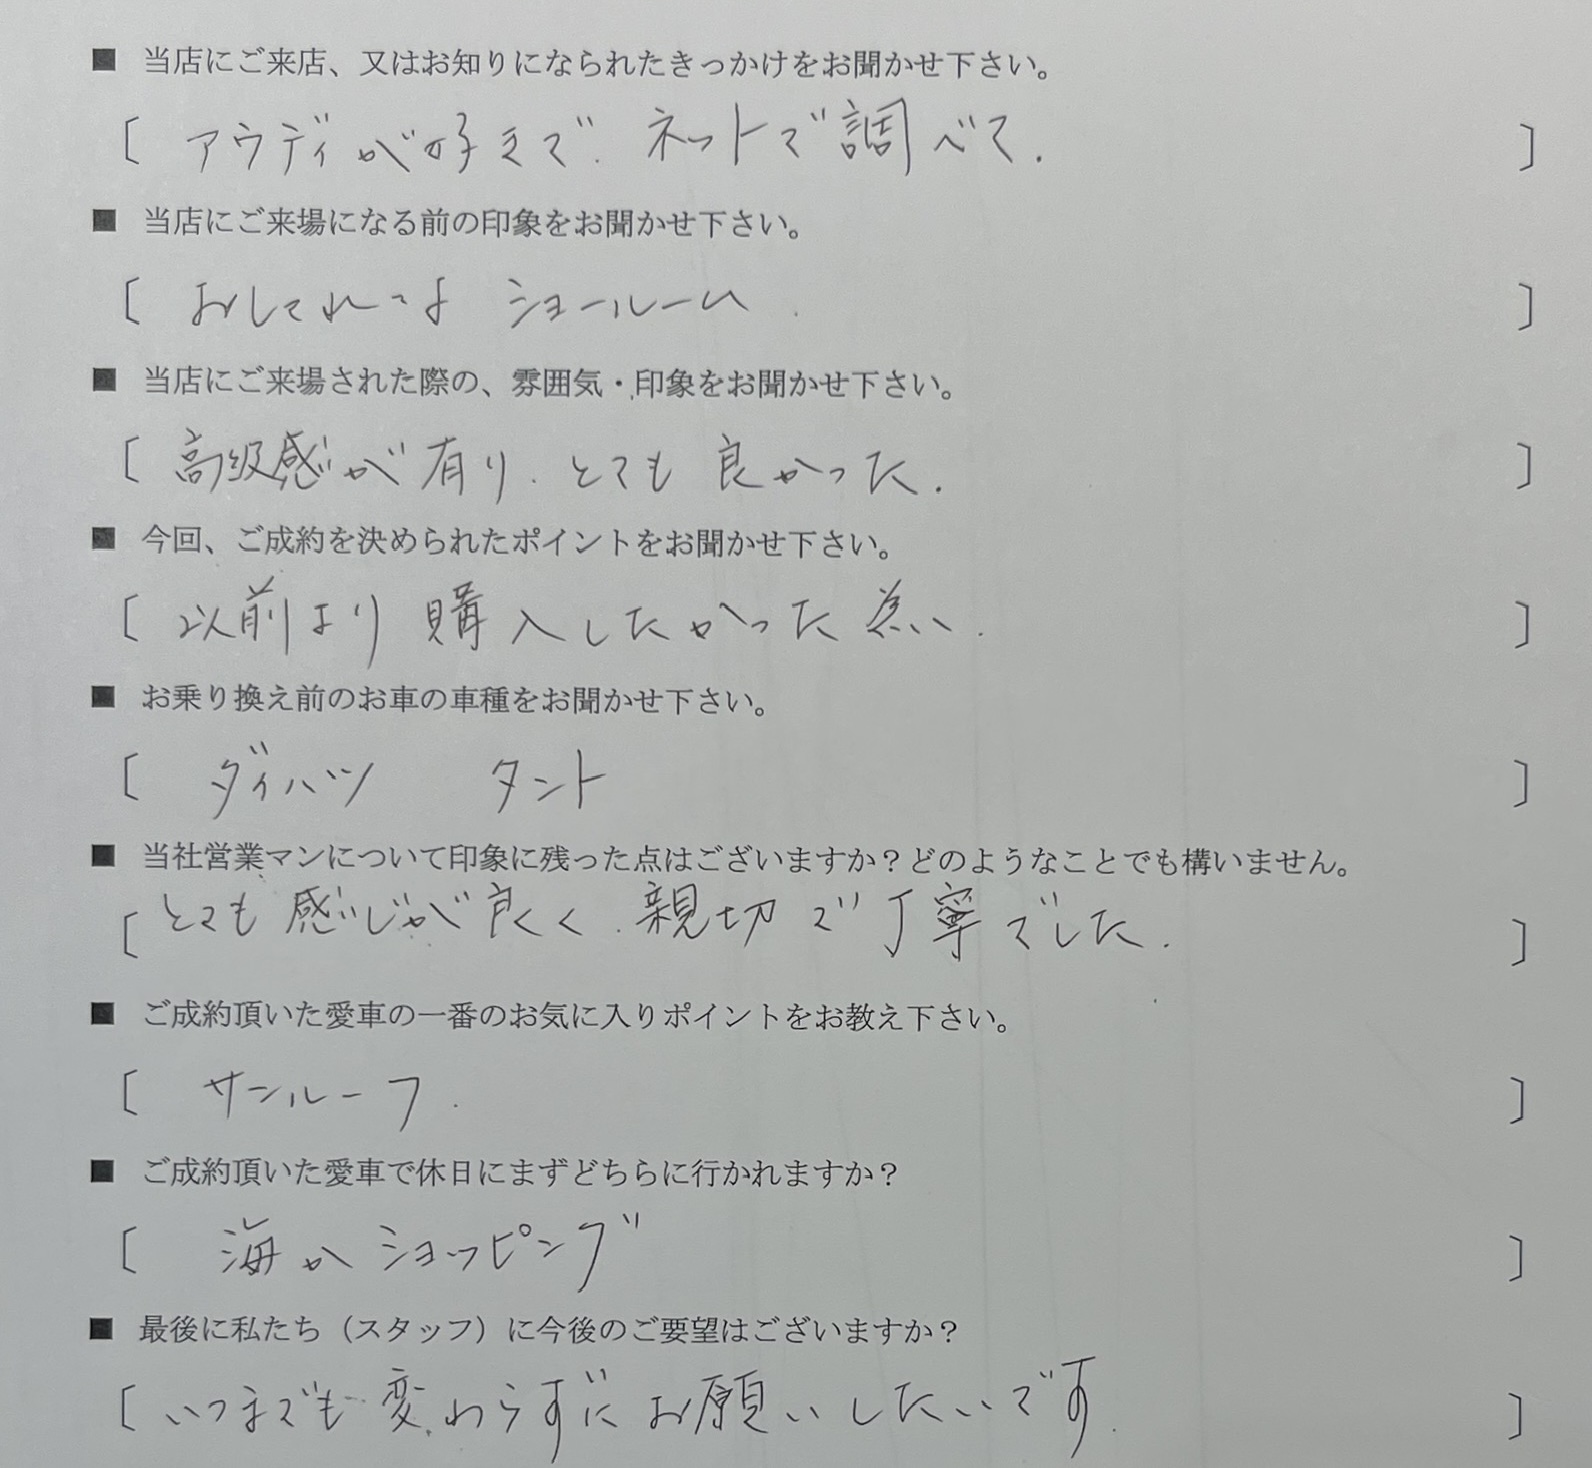 ■ 当店にご来店、又はお知りになられたきっかけをお聞かせ下さい。
〔 アウディが好きで、ネットで調べて. 〕
■ 当店にご来場になる前の印象をお聞かせ下さい。
〔 ショールーム. 〕
■ 当店にご来場された際の、雰囲気・印象をお聞かせ下さい。
〔 高級感が有り、とても良かった. 〕
■ 今回、ご成約を決められたポイントをお聞かせ下さい。
〔 以前より購入したかった為. 〕
■ お乗り換え前のお車の車種をお聞かせ下さい。
〔 ダイハツ タント 〕
■ 当社営業マンについて印象に残った点はございますか？どのようなことでも構いません。
〔 とても感じが良く、親切で丁寧でした. 〕
■ ご成約頂いた愛車の一番のお気に入りポイントをお教え下さい。
〔 サンルーフ. 〕
■ ご成約頂いた愛車で休日にまずどちらに行かれますか？
〔 海か ショッピング 〕
■ 最後に私たち（スタッフ）に今後のご要望はございますか？
〔 いつまでも変わらずにお願いしたいです. 〕